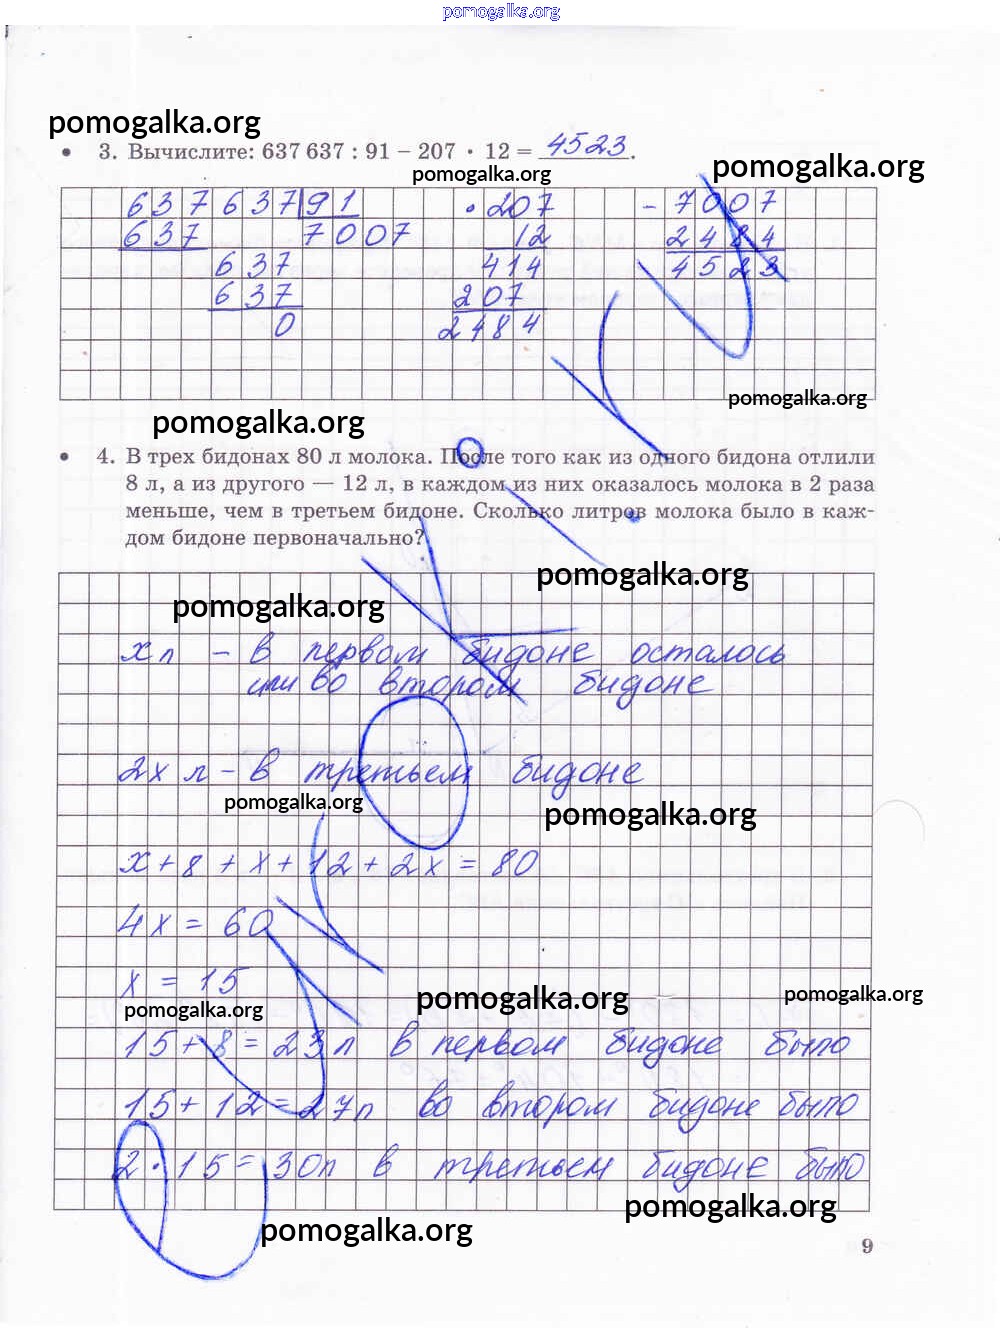 pomogalka.org
pomogalka.org
3. Вычислите: 637 637 : 91 – 207 · 12 = 4523.
pomogalka.org
pomogalka.org
637 637 91
637 7007
637
637
0
· 207
12
414
207
2484
– 7007
2484
4523
pomogalka.org
pomogalka.org
4. В трех бидонах 80 л молока. После того как из одного бидона отлили
8 л, а из другого — 12 л, в каждом из них оказалось молока в 2 раза
меньше, чем в третьем бидоне. Сколько литров молока было в каж-
дом бидоне первоначально?
pomogalka.org
pomogalka.org
x л – в первом бидоне осталось
или во втором бидоне
2x л – в третьем бидоне
pomogalka.org
pomogalka.org
x + 8 + x + 12 + 2x = 80
4x = 60
x = 15
pomogalka.org
pomogalka.org
pomogalka.org
15 + 8 = 23 л в первом бидоне было
15 + 12 = 27 л во втором бидоне было
2 · 15 = 30 л в третьем бидоне было
pomogalka.org
pomogalka.org
9